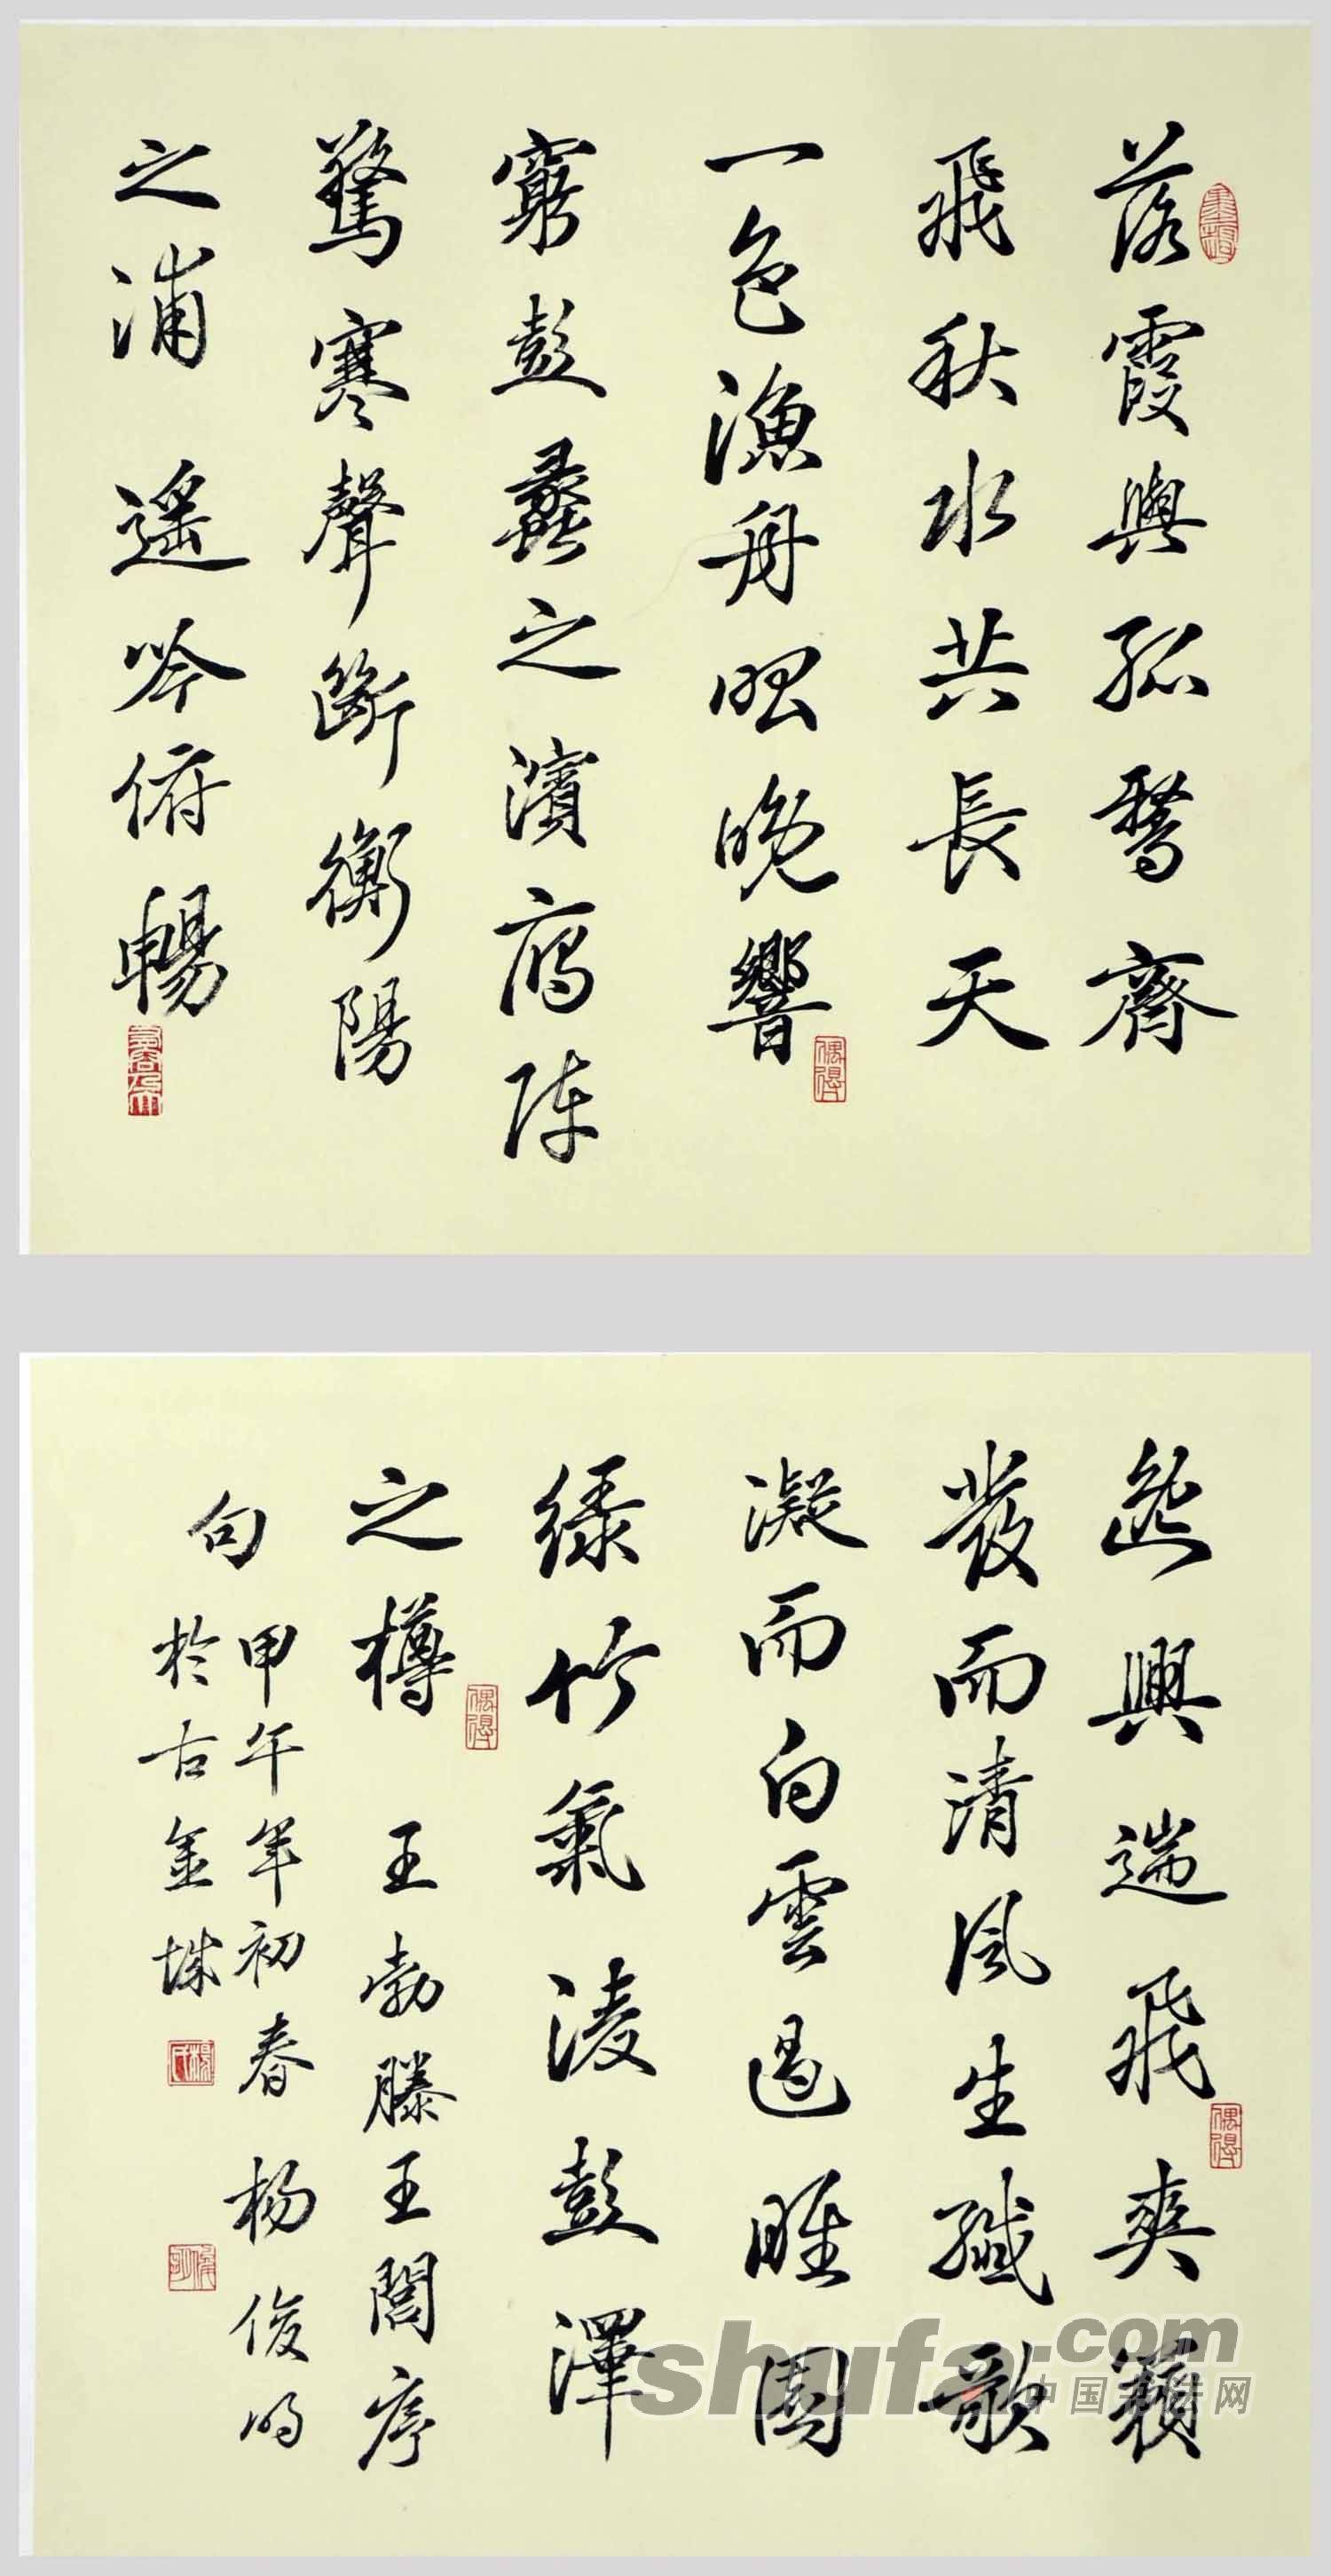 落霞與孤鶩齊
飛秋水共長天
一色漁舟唱晚響
窮彭蠡之濱雁陣
驚寒聲斷衡陽
之浦 遥吟俯暢
逸興遄飛爽籟
發而清風生纖歌
凝而白雲遏睢園
綠竹氣凌彭澤
之樽 王勃滕王閣序
句 甲午年初春楊俊明
於古金城
偶得
偶得
偶得
楊氏
俊明
shufa.com
中国书法网